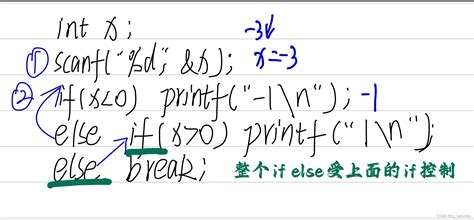 int x; -3↓
① scanf("%d", &x); x=-3
② if(x<0) printf("-1\n"); -1
else if(x>0) printf("1\n");
else break; 整个if else受上面的if控制